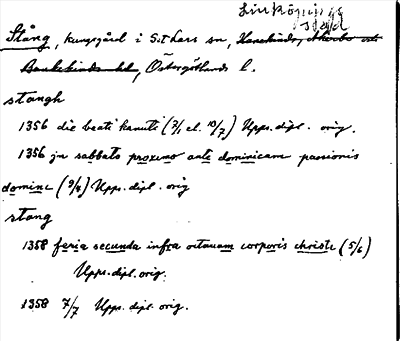 Linköpings
stad
Stång, kungsgård i S:t Lars sn, Hanekinds, Åkerbo och
Bankekinds hd, Östergötlands l.
stangh
1356 die beati kanuti (7/1 el. 10/7) Upps. dipl. orig.
1356 jn sabbato proximo ante dominicam passionis
domini (9/4) Upps. dipl. orig
stang
1358 feria secunda infra octauam corporis christi (5/6)
Upps. dipl. orig.
1358 7/7 Upps. dipl. orig.